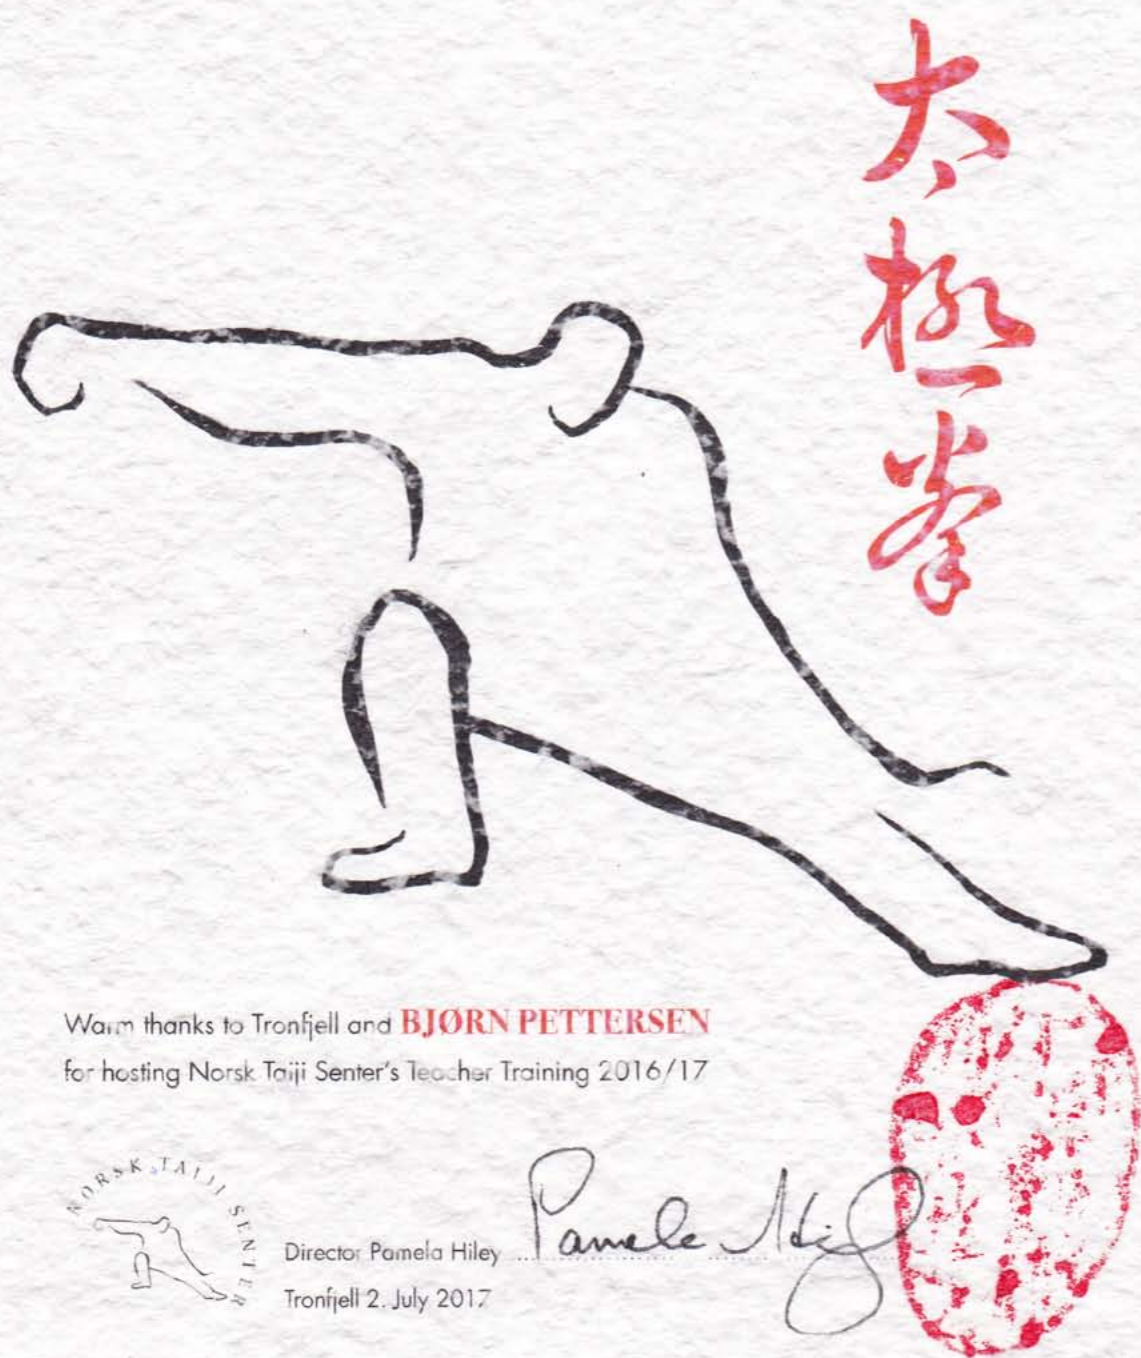 太極拳
Warm thanks to Tronfjell and BJØRN PETTERSEN
for hosting Norsk Taiji Senter's Teacher Training 2016/17
NORSK TAIJI SENTER
Director Pamela Hiley Pamela Hiley
Tronfjell 2. July 2017